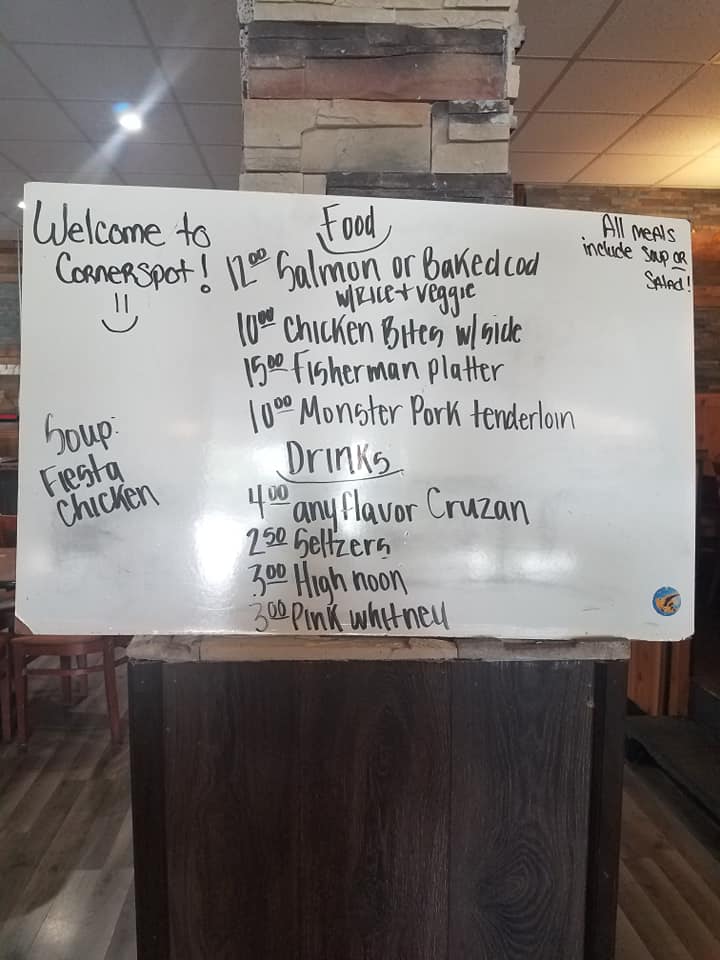 Welcome to
Cornerspot!
Food
12.00 Salmon or Baked cod
w/Rice + veggie
10.00 Chicken Bites w/side
15.00 Fisherman platter
10.00 Monster Pork tenderloin
Drinks
4.00 any flavor Cruzan
2.50 Seltzers
3.00 High noon
3.00 Pink whitney
All meals
include soup or
Salad!
Soup:
Fiesta
Chicken